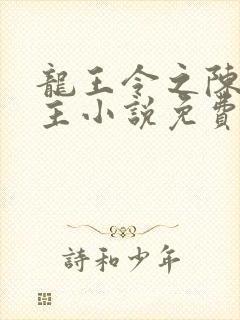 龍王令之陳
主小說免費
詩和少年